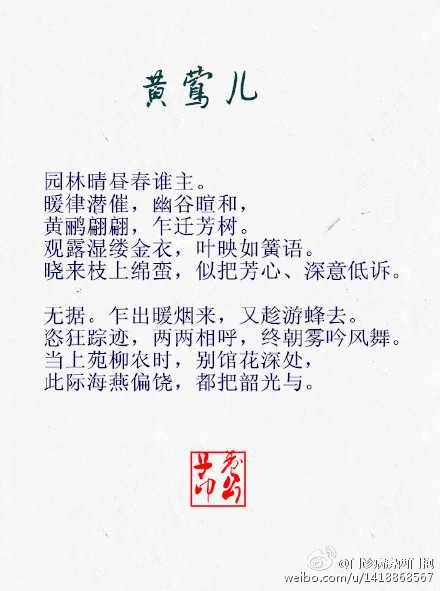 黄莺儿
园林晴昼春谁主。
暖律潜催，幽谷暄和，
黄鹂翩翩，乍迁芳树。
观露湿缕金衣，叶映如簧语。
晓来枝上绵蛮，似把芳心、深意低诉。
无据。乍出暖烟来，又趁游蜂去。
恣狂踪迹，两两相呼，终朝雾吟风舞。
当上苑柳农时，别馆花深处，
此际海燕偏饶，都把韶光与。
weibo.com/u/1418868567